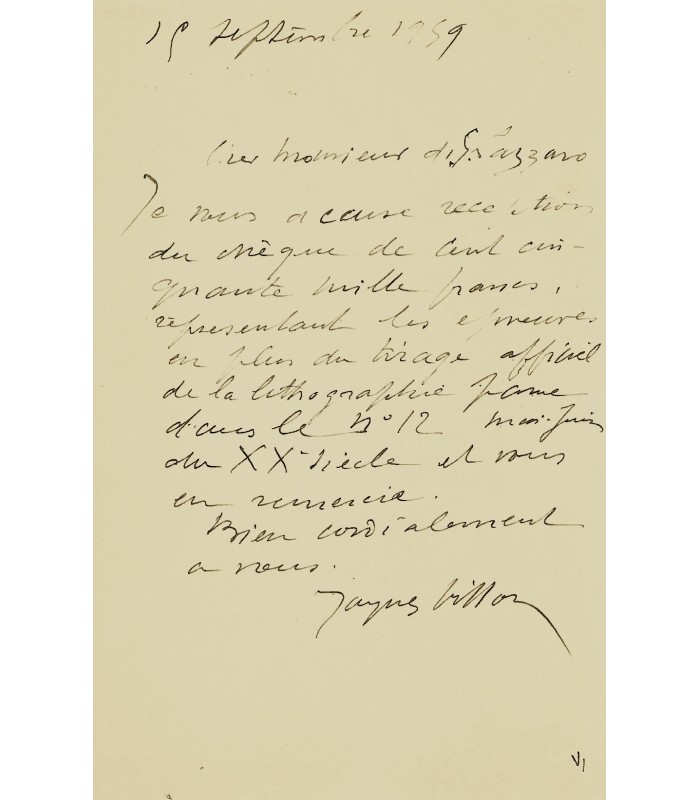 15 septembre 1959
Cher Monsieur di San Lazzaro
Je vous accuse reception
du chèque de cent cin-
quante mille francs,
représentant les epreuves
en plus du tirage officiel
de la lithographie parue
dans le N° 12 Mai-Juin
du XXe Siècle et vous
en remercie.
Bien cordialement
a vous.
Jacques Villon
VI